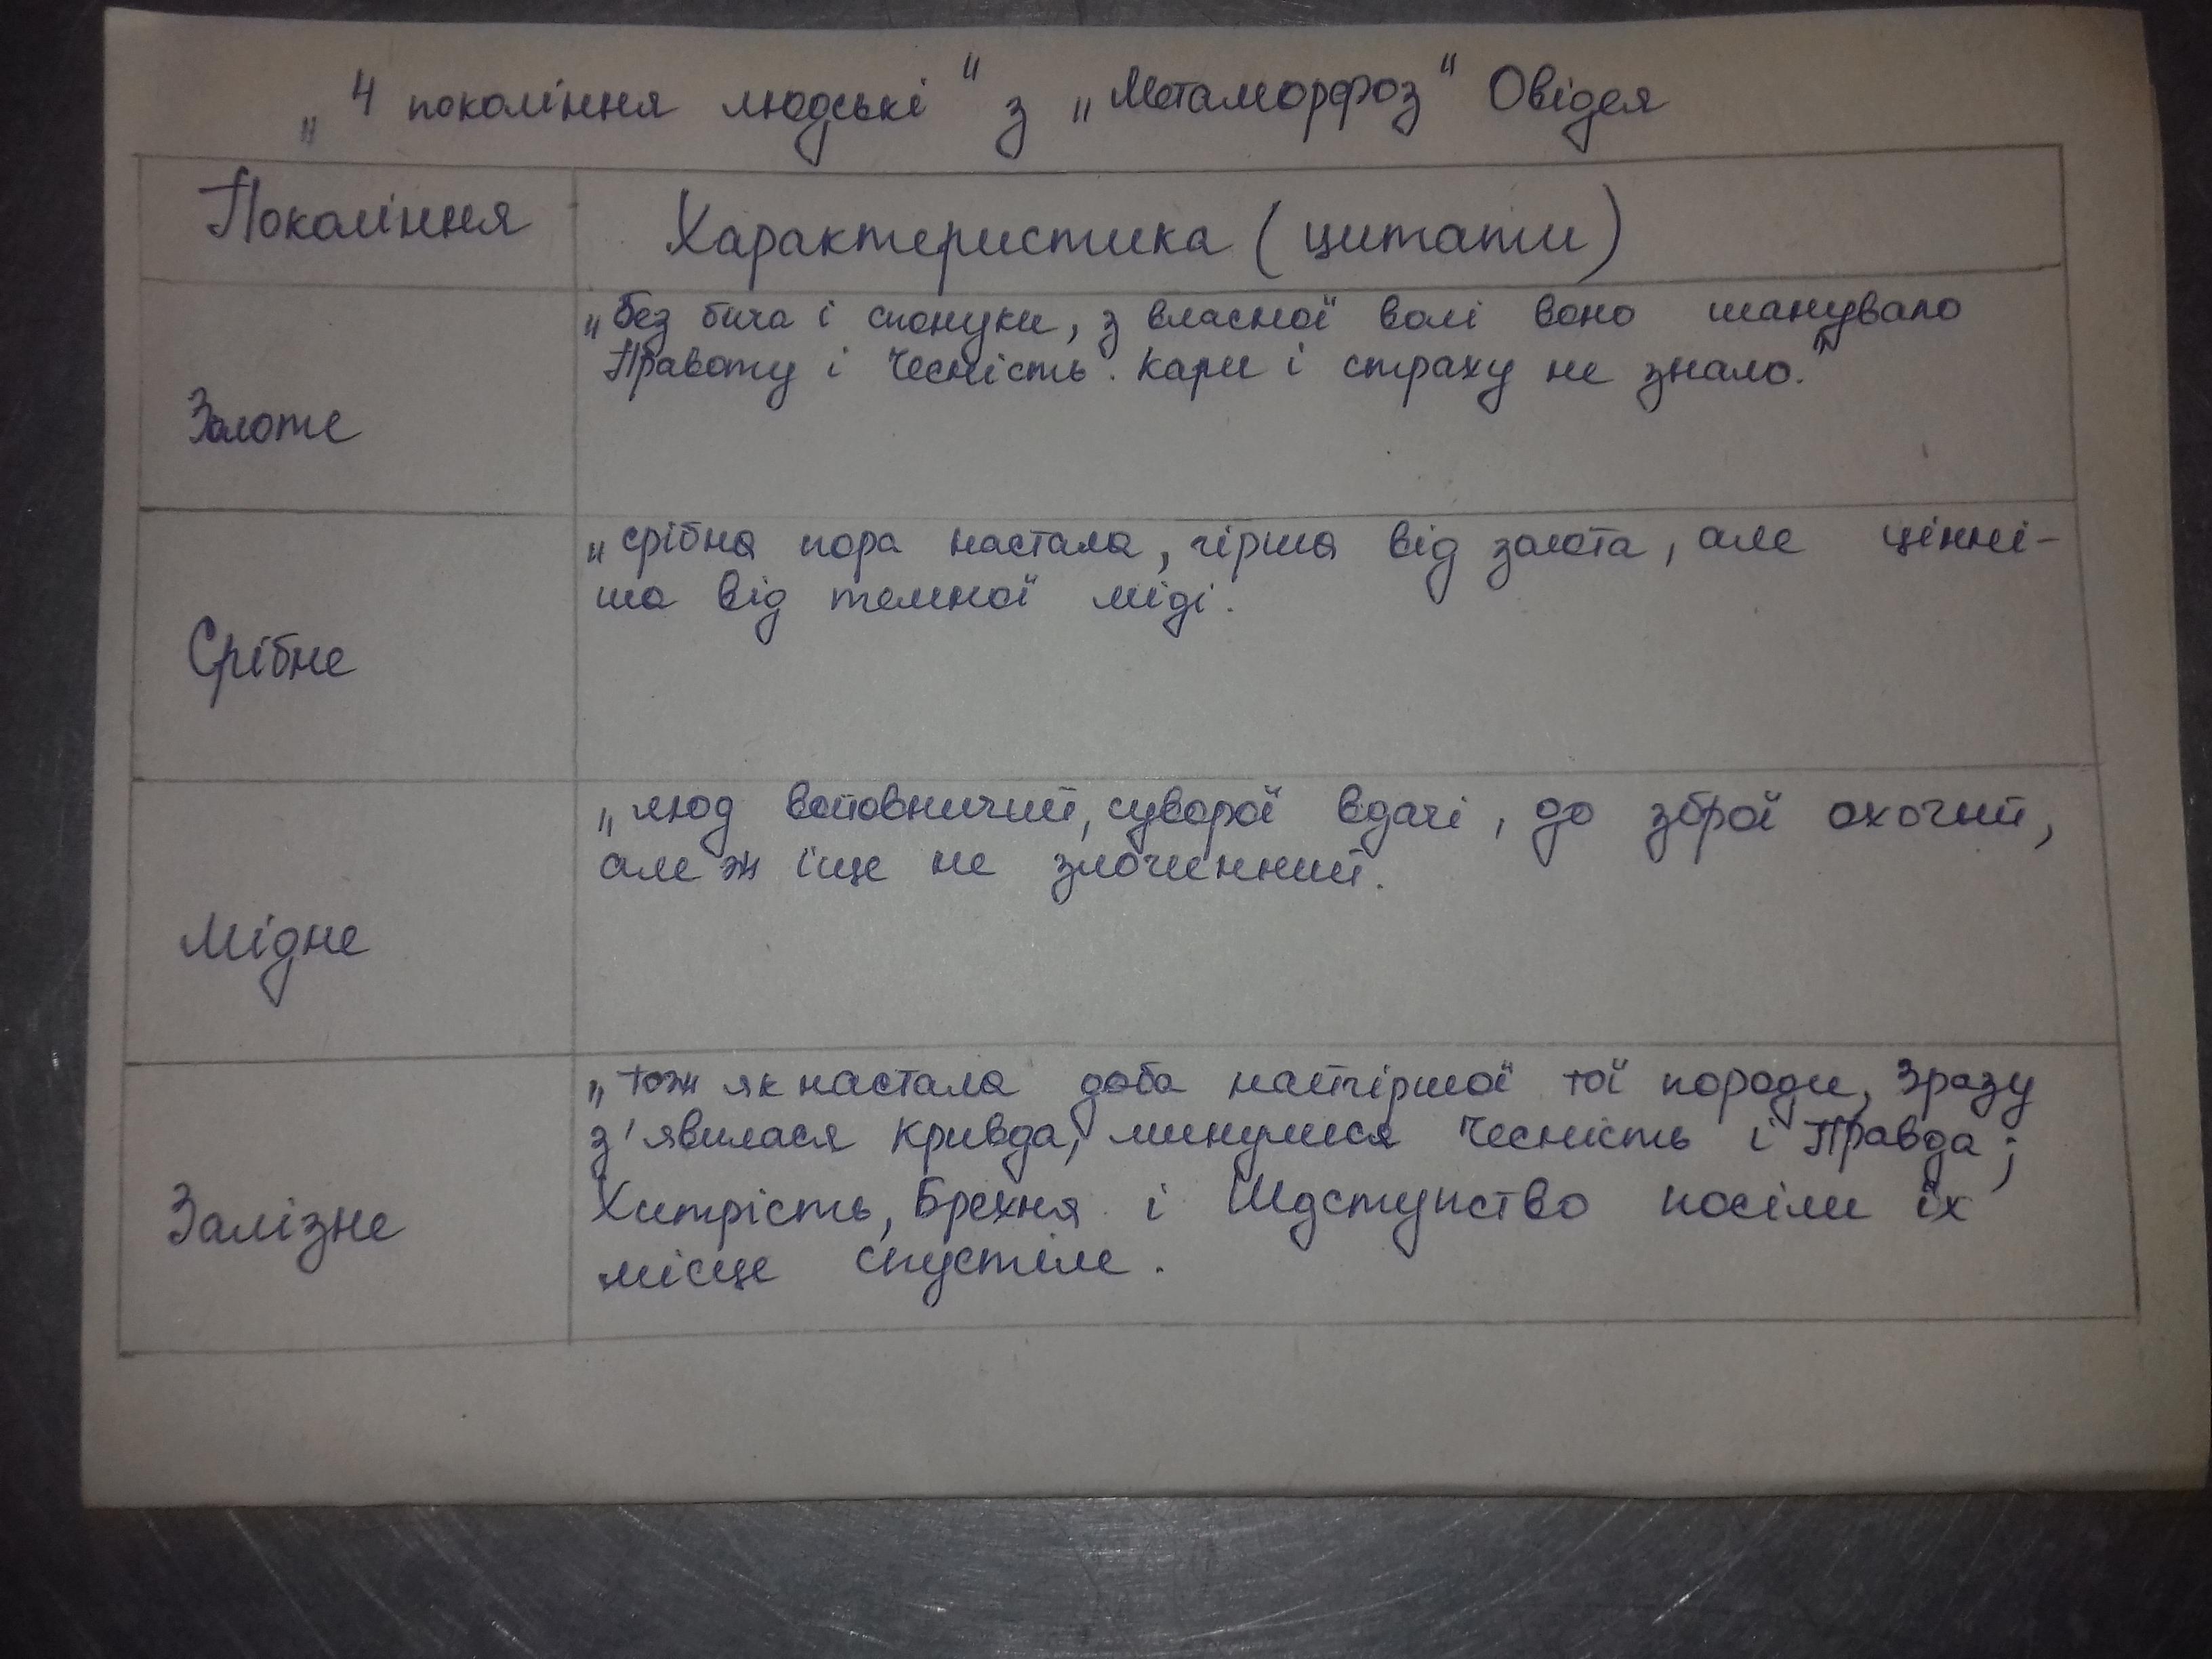 „4 покоління людські" з „Метаморфоз" Овідея
Покоління
Характеристика (цитати)
Золоте
„без бича і спонуки, з власної волі воно шанувало
Правоту і Чесність. Кари і страху не знало."
Срібне
„срібна пора настала, гірша від золота, але цінні-
ша від темної міді.
Мідне
„люд войовничий, суворої вдачі, до зброї охочий,
але ж іще не злочинний.
Залізне
„тож як настала доба найгіршої тої породи, Зразу
з'явилася Кривда, минулися Чесність і Правда;
Хитрість, Брехня і Підступство посіли їх
місце спустіле.